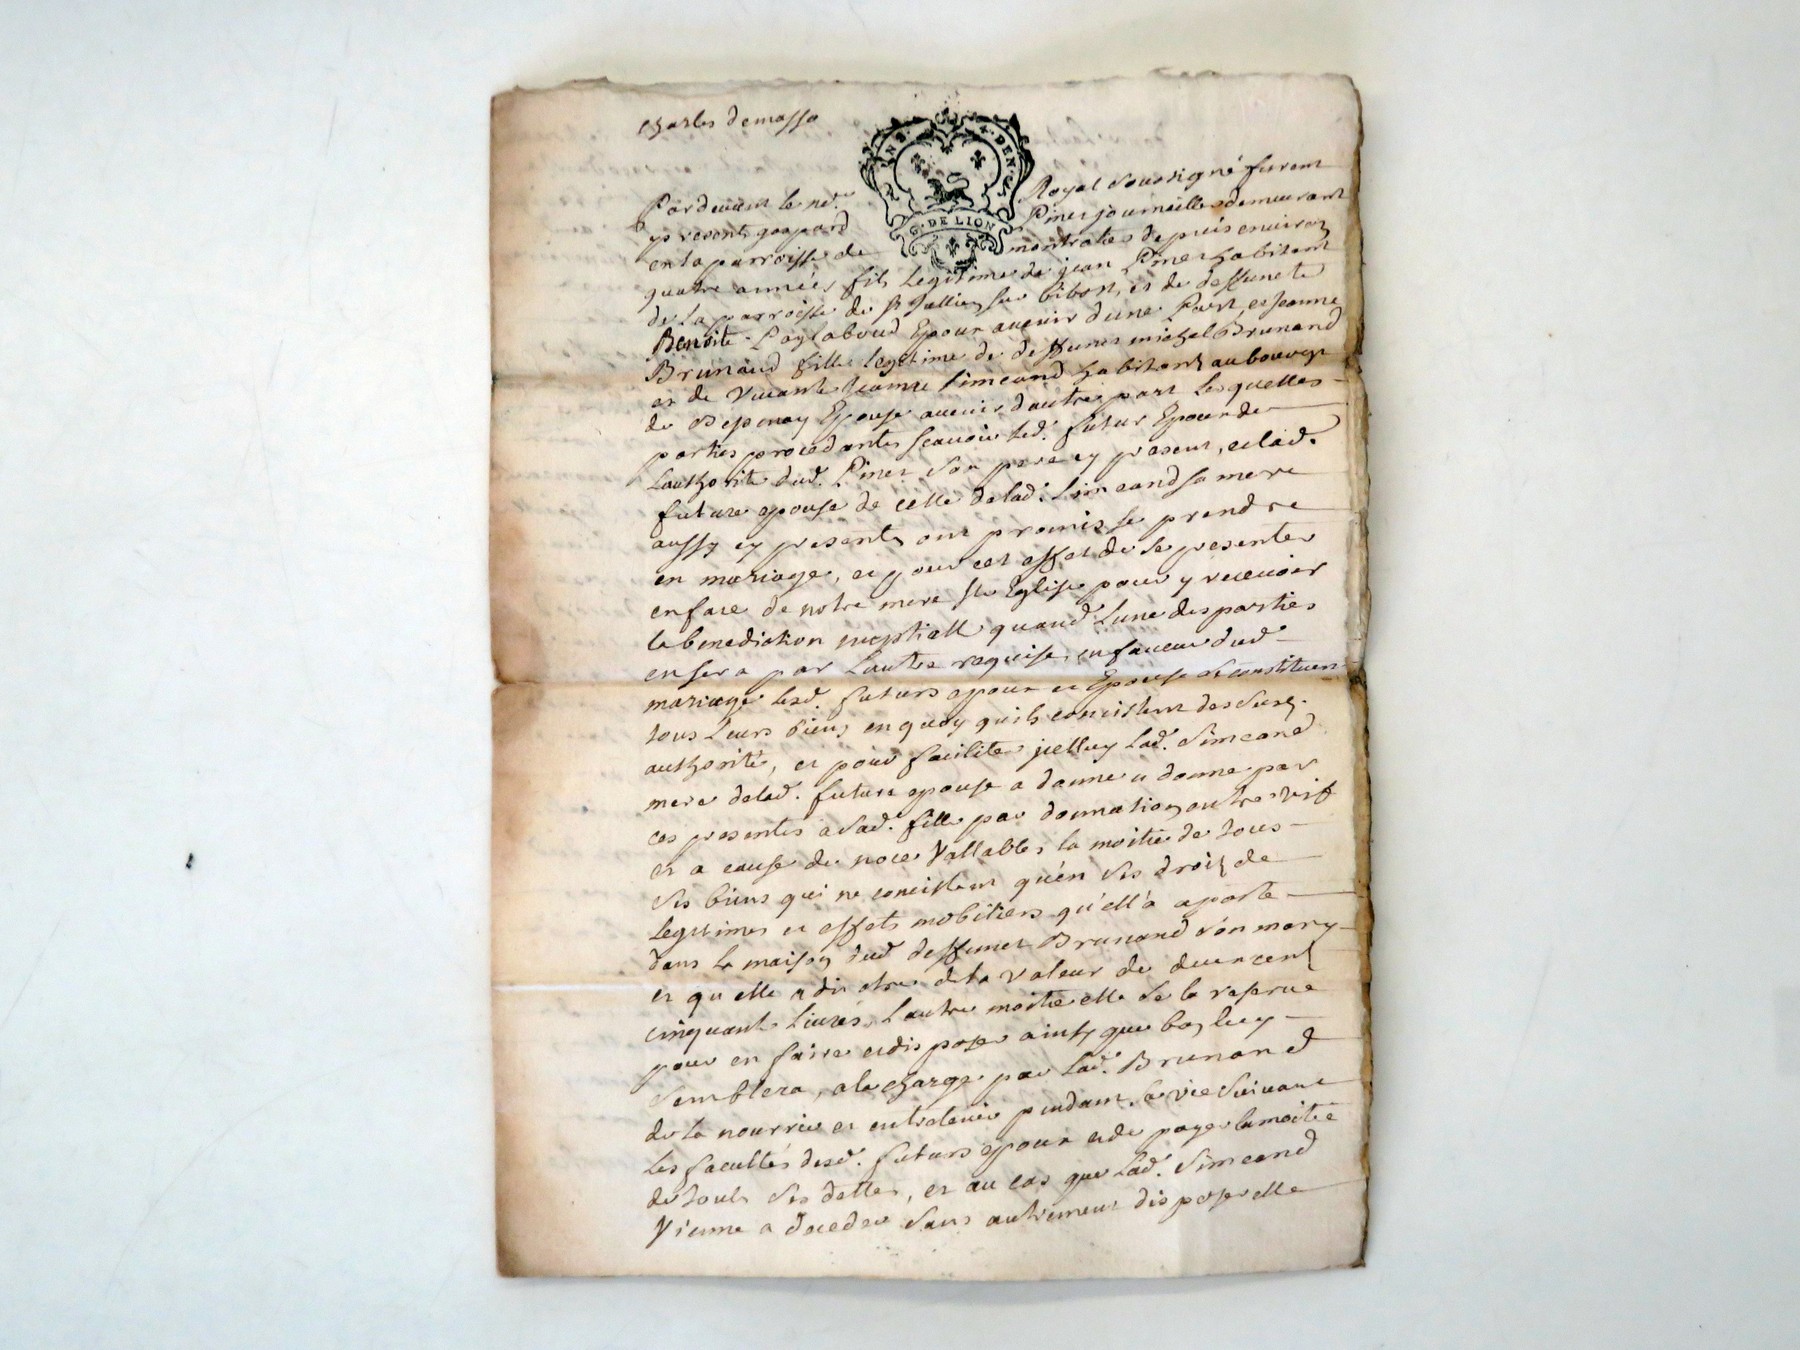 charles demassa
INS. X. DEN. G. DE LION
Pardevant le no.re Royal soussigné furent
presents gaspard Pinet journeillier demeurant
en la parroisse de montrotier depuis environ
quatre années fils legitime de jean Pinet habitant
de la parroisse de St Jullien sur bibost, et de deffuncte
Benoite epoux avenir d'une Part, et jeanne
Brunaud fille legitime de deffunct michel Brunand
et de vivante jeanne simeand habitant au bourg
de Bessenay Epouse avenir d'autre part lesquelles
parties procedantes scavoir led. futur Epour de
L'authorité dud. Pinet son pere cy present, et lad.
future epouse de celle de lad. simeand sa mere
aussy cy presents, ont promis se prendre
en mariage, et pour cet effet de se presenter
en face de notre mere Ste Eglise pour y recevoir
la benediction nuptiall quand L'une des parties
en sera par L'autre requise, en faveur dud
mariage lesd. futurs epoux et Epouse se constituent
tous Leurs biens en quoy qu'ils concistent des sus.
authorité, et pour faciliter jcelluy Lad. Simeand
mere delad. future epouse a donne et donne par
ces presentes a sad. fille par donnation entre vif
et a cause de noce vallable, la moitié de tous
ses biens qui ne concistent qu'en ses droits de
legitimes et effets mobiliers qu'ell'a aporté
dans la maison dud deffunct Brunand son mary
et qu'elle a dit etre de la valeur de deux cent
cinquante livres, L'autre moitié elle se la reserve
pour en faire et disposer ainsy que bon luy
semblera, a la charge par Lad. Brunand
de la nourrir et entretenir pendant sa vie suivant
les facultés desd. futurs epoux et de payer la moitié
de touts ses dettes, et au cas que Lad. Simeand
vienne a deceder sans autrement disposer elle